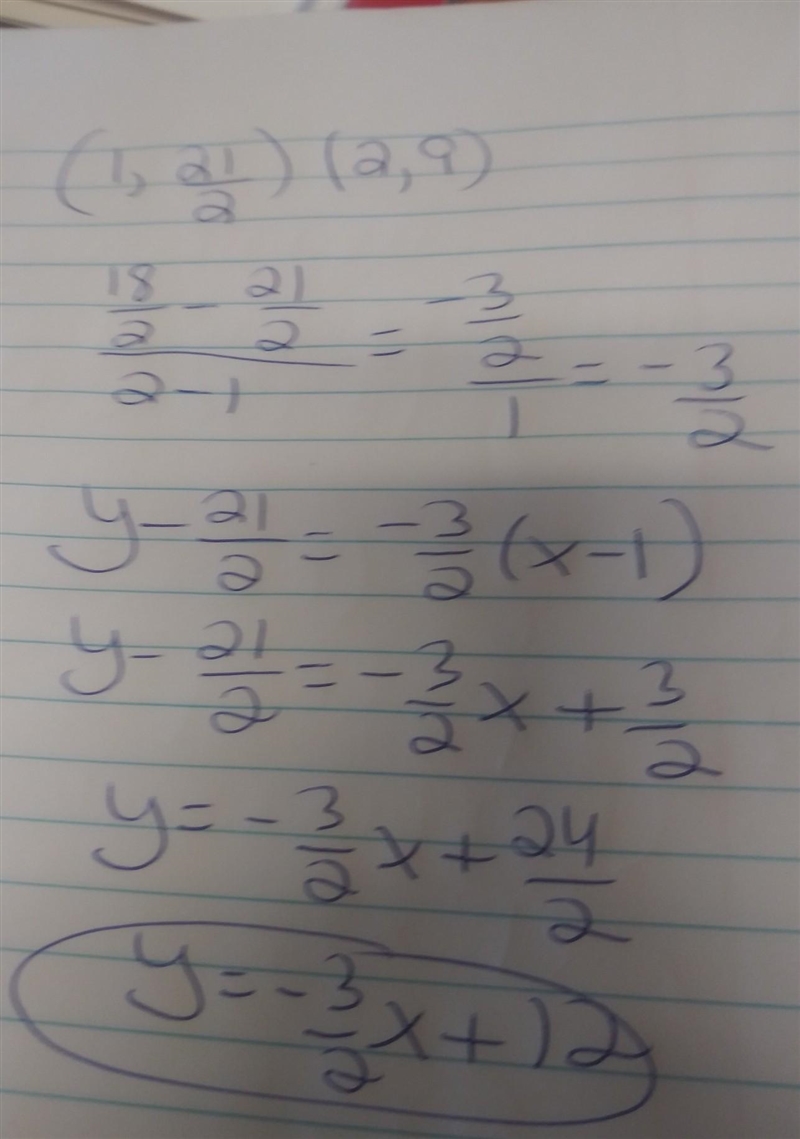 (1, 21/2) (2, 9)
(18/2 - 21/2)/(2 - 1) = (-3/2)/1 = -3/2
y - 21/2 = -3/2 (x - 1)
y - 21/2 = -3/2 x + 3/2
y = -3/2 x + 24/2
y = -3/2 x + 12